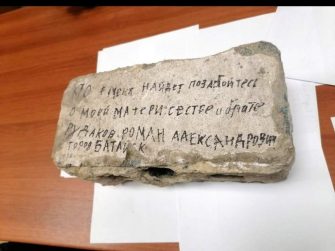 КТО меня НАЙДЕТ ПОЗАБОТЬТЕСЬ
О МОЕЙ МАТЕРИ:СЕСТРЕ и брате
РУДАКОВ.РОМАН ААЕКСАНДРОВИЧ
ГОРОД БАТАЙСК